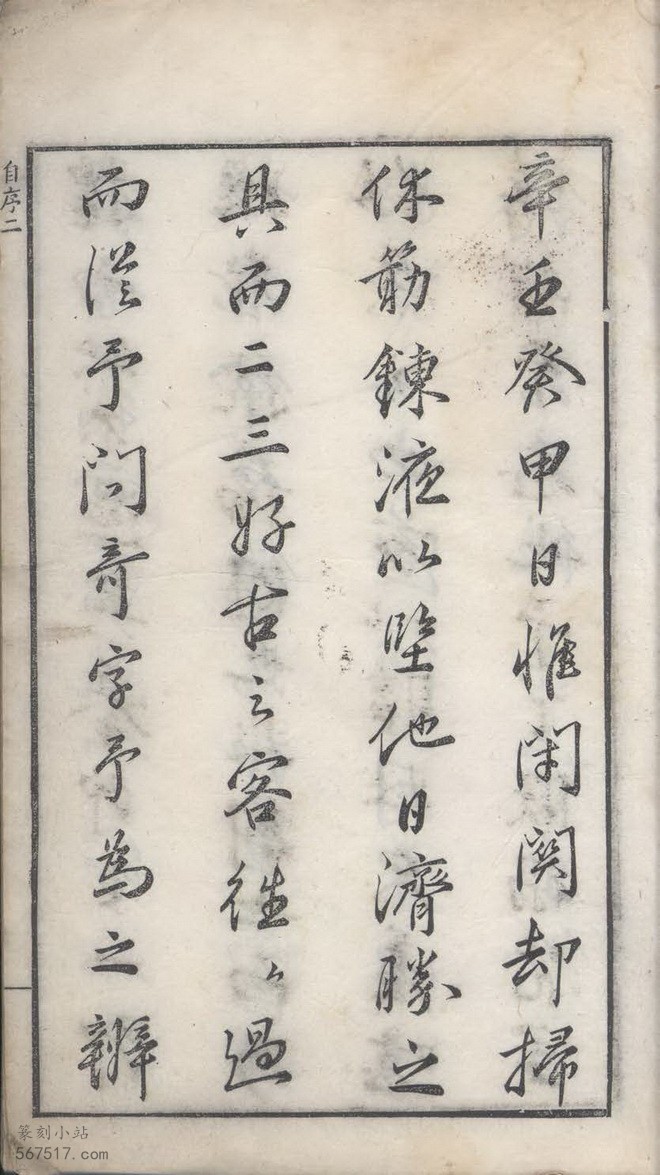 辛壬癸甲日惟閉関却掃
休筋鍊液以堅他日濟勝之
具而二三好古之客往〻過
而從予問奇字予為之辦
自序二
篆刻小站
567517.com